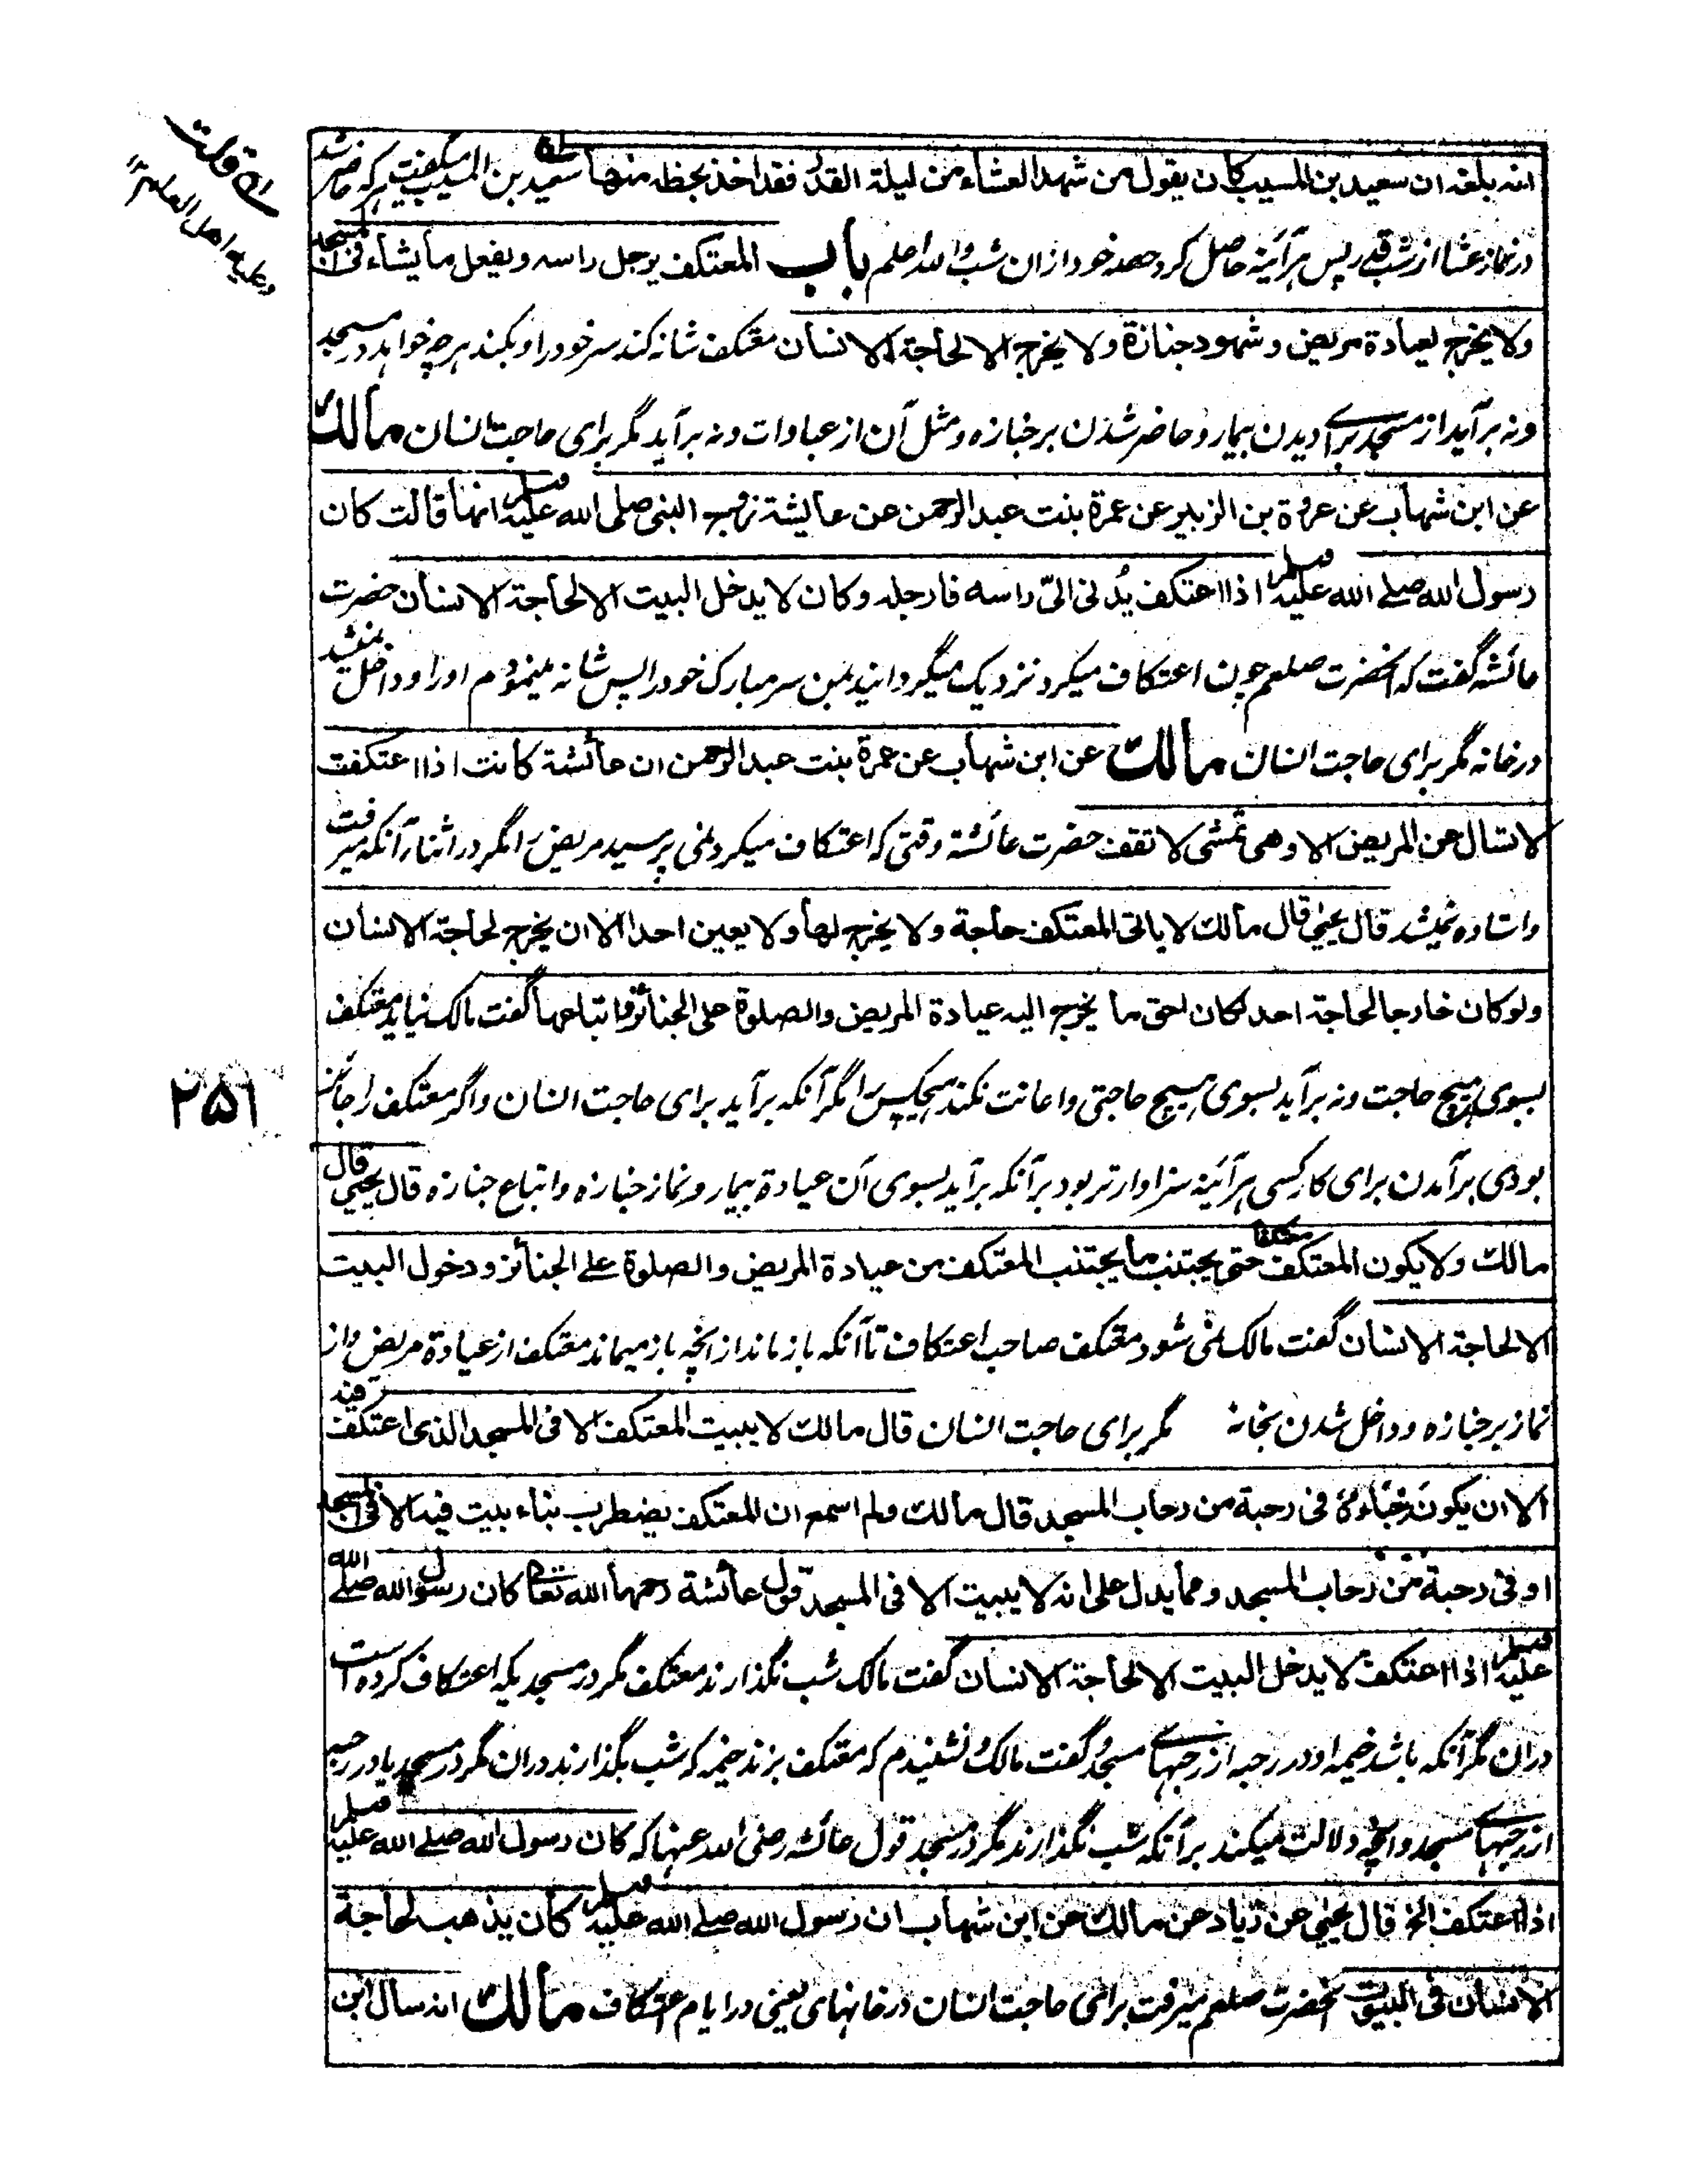 انه بلغه ان سعید بن المسیب کان یقول من شهد العشاء من لیلة القدر فقد اخذ بحظه منها سعید بن المسیب میگفت هرکه حاضر شد
در نماز عشا از شب قدر پس هر آئینه حاصل کرد حصه خود ازان شب والله اعلم باب المعتکف یرجل راسه ویفعل ما یشاء فی المسجد
ولا یخرج لعیادة مریض وشهود جنازة ولا یخرج الا لحاجة الانسان معتکف شانه کند سر خود را و بکند هر چه خواهد در مسجد
ونه برآید از مسجد برای دیدن بیمار و حاضر شدن بر جنازه و مثل آن از عبادات ونه برآید مگر برای حاجت انسان مالك
عن ابن شهاب عن عروة بن الزبیر عن عمرة بنت عبد الرحمن عن عایشة زوج النبی صلی الله علیه وسلم انها قالت کان
رسول الله صلے الله علیه وسلم اذا اعتکف یُدنی الیّ راسه فارجله وکان لا یدخل البیت الا لحاجة الانسان حضرت
عائشه گفت که آنحضرت صلعم چون اعتکاف میکرد نزدیک میگردانید بمن سر مبارک خود را پس شانه مینمودم او را و داخل نمیشد
در خانه مگر برای حاجت انسان مالك عن ابن شهاب عن عمرة بنت عبد الرحمن ان عائشة کانت اذا اعتکفت
لا تسال عن المریض الا وهی تمشی لا تقف حضرت عائشه وقتی که اعتکاف میکرد نمی پرسید مریض را مگر در اثناء آنکه میرفت
واستاده نمیشد قال یحیی قال مالك لا یاتی المعتکف حاجة ولا یخرج لها ولا یعین احدا الا ان یخرج لحاجة الانسان
ولو کان خارجا لحاجة احد لکان احق ما یخرج الیه عیادة المریض والصلوة علی الجنائز واتباعها گفت مالک نیاید معتکف
بسوی هیچ حاجت ونه برآید بسوی هیچ حاجتی و اعانت نکند هیچکس را مگر آنکه برآید برای حاجت انسان و اگر معتکف را جائز
بودی برآمدن برای کار کسی هر آئینه سزاوارتر بود برآنکه برآید بسوی آن عیادة بیمار و نماز جنازه و اتباع جنازه قال یحیی قال
مالك ولا یکون المعتکف معتکفا حتی یجتنب ما یجتنب المعتکف من عیادة المریض والصلوة علے الجنائز ودخول البیت
الا لحاجة الانسان گفت مالک نمی شود معتکف صاحب اعتکاف تا آنکه باز ماند از آنچه باز میماند معتکف از عیادة مریض و از
نماز بر جنازه و داخل شدن بخانه مگر برای حاجت انسان قال مالك لا یبیت المعتکف الا فی المسجد الذی اعتکف فیه
الا ان یکون خباؤه فی رحبة من رحاب المسجد قال مالك ولم اسمع ان المعتکف یضطرب بناء یبیت فیه الا فی المسجد
او فی رحبة من رحاب المسجد ومما یدل علی انه لا یبیت الا فی المسجد قول عائشة رحمها الله تعالی کان رسول الله صلے الله
علیه وسلم اذا اعتکف لا یدخل البیت الا لحاجة الانسان گفت مالک شب نگذارند معتکف مگر در مسجدیکه اعتکاف کرده است
دران مگر آنکه باشد خیمه او در رحبه از رحبهای مسجد گفت مالک و نشنیدم که معتکف بزند خیمه که شب بگذارند دران مگر در مسجد یا در رحبه
از رحبهای مسجد و آنچه دلالت میکند برآنکه شب نگذارند مگر در مسجد قول عائشه رضی الله عنها که کان رسول الله صلے الله علیه وسلم
اذا اعتکف الخ قال یحیی عن زیاد عن مالك عن ابن شهاب ان رسول الله صلے الله علیه وسلم کان یذهب لحاجة
الانسان فی البیوت آنحضرت صلعم میرفت برای حاجت انسان در خانهای یعنی در ایام اعتکاف مالك انه سال ابن
قلت
وعلیه اهل العلم
۲۵۱